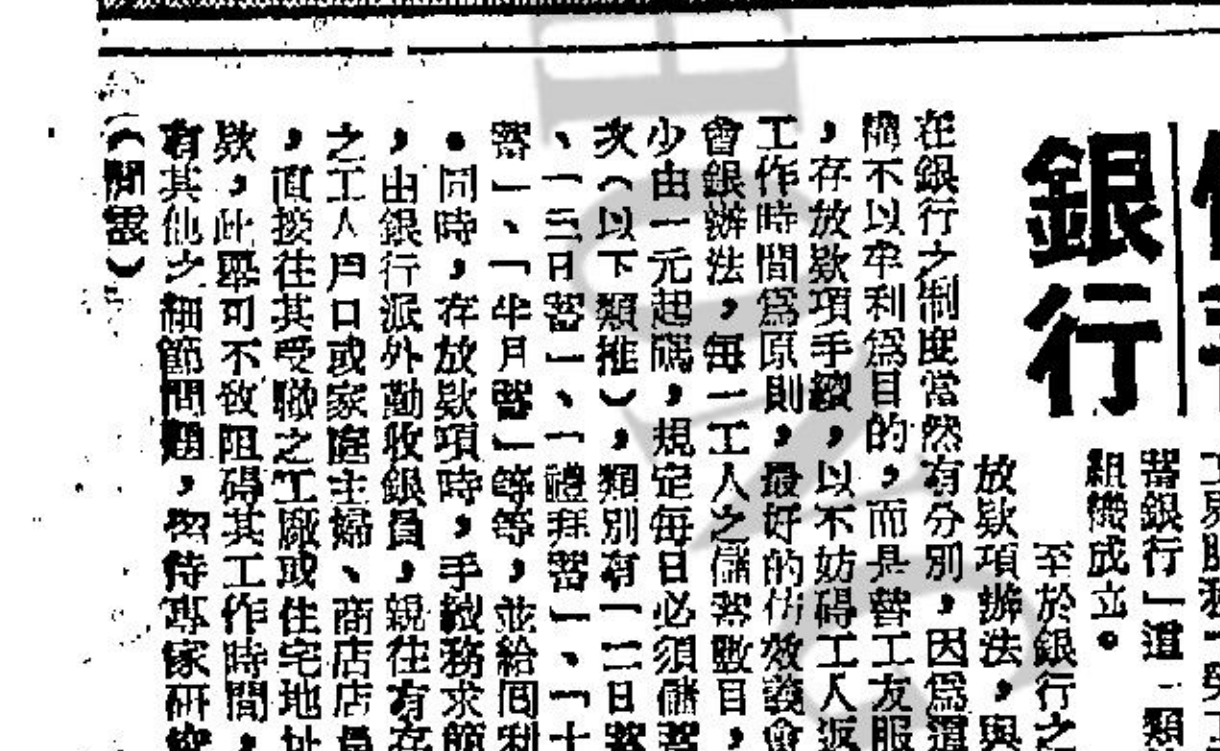 銀行
蓄銀行」道一類
組織成立。
至於銀行之
放款項辦法,與
在銀行之制度當然有分別,因爲這
機不以牟利爲目的,而是替工友服
,存放款項手續,以不妨碍工人返
工作時間爲原則,最好的仿效義會
會銀辦法,每一工人之儲蓄數目,
少由一元起碼,規定每日必須儲蓄
次(以下類推),類別有「二日蓄
、「三日蓄」、「禮拜蓄」、「十
蓄」、「半月蓄」等等,並給回利
。同時,存放款項時,手續務求簡
,由銀行派外勤收銀員,親往有存
之工人戶口或家庭主婦、商店店員
,直接往其受聯之工廠或住宅地址
款,此舉可不致阻碍其工作時間,
有其他之細節問題,留待專家研究
(閒雲)